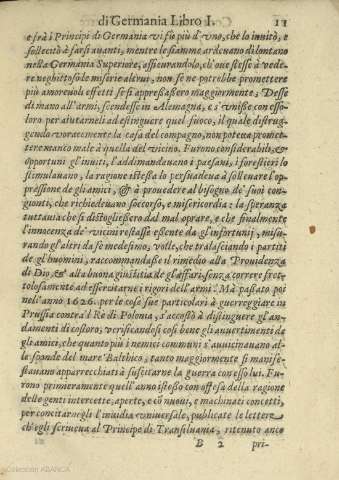 di Germania Libro I. 11
e frà i Principi di Germania vi fu più d'vno, che lo inuitò, e
sollecitò à farsi auanti, mentre le fiamme ardeuano di lontano
nella Germania Superiore, assicurandolo, ch'oue stesse à vede-
re neghittoso le miserie altrui, non se ne potrebbe promettere
più amoreuoli effetti se si appressassero maggiormente; Desse
di mano all'armi, scendesse in Alemagna, e s'vnisse con esso-
loro per aiutarneli ad estinguere quel fuoco, il quale distrug-
gendo voracemente la casa del compagno, non poteua promet-
tere manco male à quella del vicino. Furono considerabili, &
opportuni gl'inuiti, l'addimandauano i paesani, i forestieri lo
stimulauano, la ragione istessa lo persuadeua à solleuare l'op-
pressione de gli amici, & à prouedere al bisogno de' suoi con-
gionti, che richiedeuano soccorso, e misericordia: la speranza
tuttauia che si distogliessero dal mal oprare, e che finalmente
l'innocenza de' vicini restasse essente da gl'infortunij, misu-
rando gl'altri da sè medesimo; volle, che tralasciando i partiti
de gl'huomini, raccommandasse il rimedio alla Prouidenza
di Dio, & alla buona giustitia de gl'affari, senza correre fret-
tolosamente ad essercitarne i rigori dell'armi. Mà passato poi
nell'anno 1626. per le cose sue particolari à guerreggiare in
Prussia contra'l Rè di Polonia, s'accostò à distinguere gl'an-
damenti di costoro, verificandosi così bene gli auuertimenti de
gli amici, che quanto più i nemici communi s'auuicinauano al-
le sponde del mare Balthico, tanto maggiormente si manife-
stauano apparrecchiati à suscitarne la guerra con esso lui. Fu-
rono primieramente quell'anno istesso con offesa della ragione
delle genti intercette, aperte, e cō nuoui, e machinati concetti,
per concitarnegli l'inuidia vniuersale, publicate le lettere
ch'egli scriueua al Principe di Transiluania, ritenuto anco
B 2 pri-
Colección ABANCA